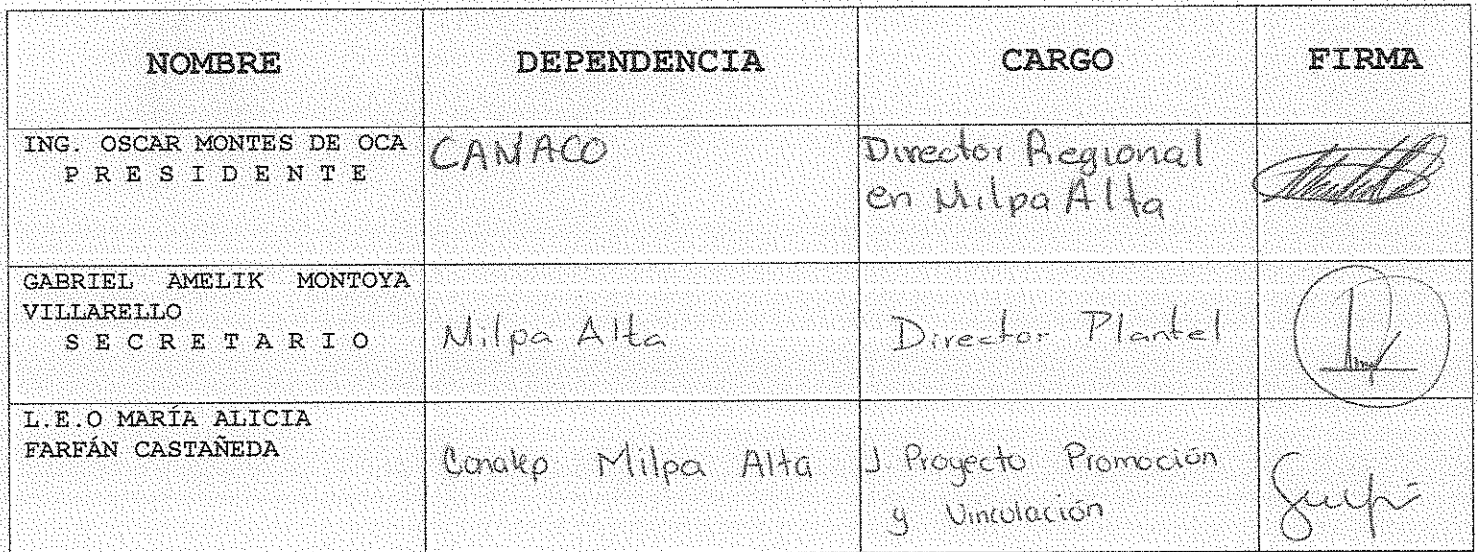 NOMBRE DEPENDENCIA CARGO FIRMA
ING. OSCAR MONTES DE OCA
P R E S I D E N T E
CANACO
Director Regional
en Milpa Alta
GABRIEL AMELIK MONTOYA
VILLARELLO
S E C R E T A R I O
Milpa Alta
Director Plantel
L.E.O MARÍA ALICIA
FARFÁN CASTAÑEDA
Conalep Milpa Alta
J. Proyecto Promoción
y Vinculación